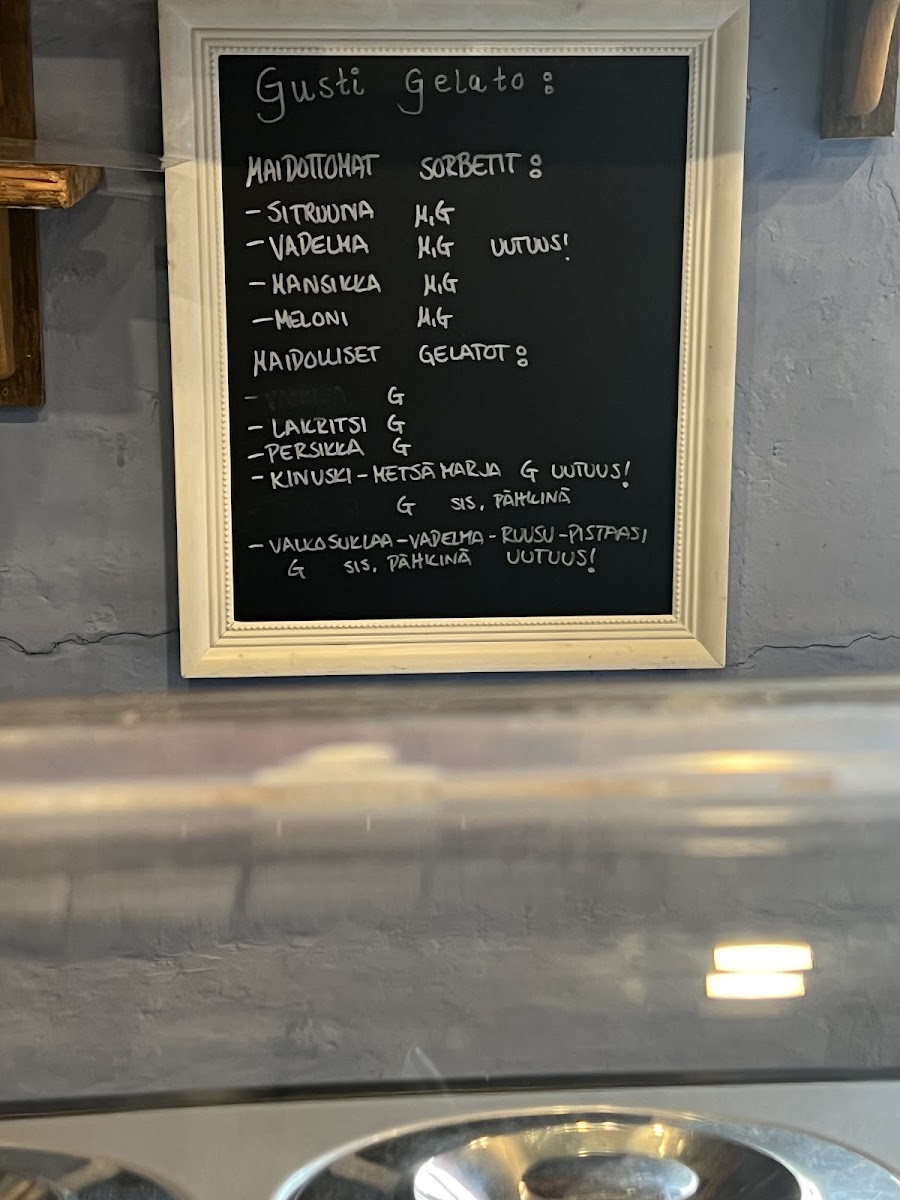 Gusti Gelato:
MAIDOTTOMAT SORBETIT:
- SITRUUNA M,G
- VADELMA M,G UUTUUS!
- MANSIKKA M,G
- MELONI M,G
MAIDOLLISET GELATOT:
- G
- LAKRITSI G
- PERSIKKA G
- KINUSKI - METSÄMARJA G UUTUUS!
G SIS. PÄHKINÄ
- VALKOSUKLAA - VADELMA - RUUSU - PISTAASI
G SIS. PÄHKINÄ UUTUUS!